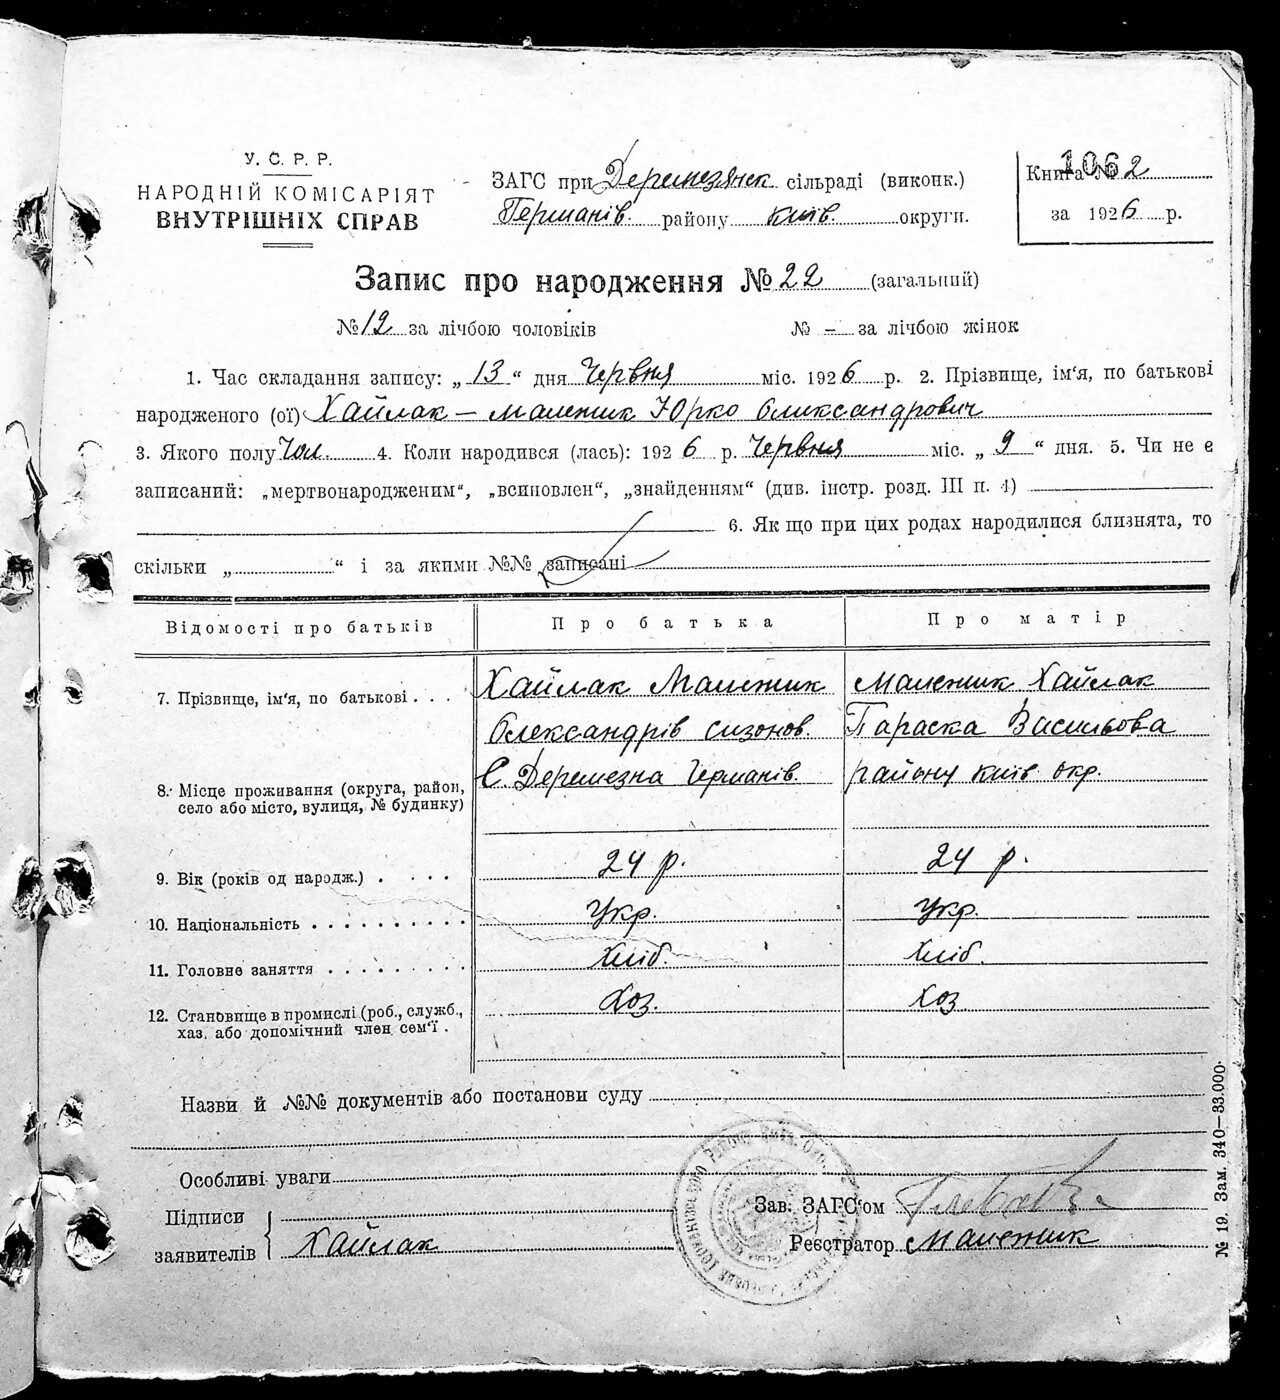 У. С. Р. Р.
НАРОДНІЙ КОМІСАРІЯТ
ВНУТРІШНІХ СПРАВ
ЗАГС при Деремезянск. сільраді (виконк.)
Германів. району Київ. округи.
1062
Книга № 2
за 1926 р.
Запис про народження № 22 (загальний)
№ 12 за лічбою чоловіків № – за лічбою жінок
1. Час складання запису: „ 13 “ дня Червня міс. 1926 р. 2. Прізвище, ім'я, по батькові
народженого (ої) Хайлак – Малежик Юрко Олександрович
3. Якого полу Чол. 4. Коли народився (лась): 1926 р. Червня міс. „ 9 “ дня. 5. Чи не є
записаний: „мертвонародженим“, „всиновлен“, „знайденням“ (див. інстр. розд. III п. 4)
6. Як що при цих родах народилися близнята, то
скільки „ “ і за якими №№ записані
Відомості про батьків Про батька Про матір
7. Прізвище, ім'я, по батькові . . . Хайлак Малежик Малежик Хайлак
Олександрів Сизонов. Параска Васильова
8. Місце проживання (округа, район, С. Деремезна Германів. району Київ. окр.
село або місто, вулиця, № будинку)
9. Вік (років од народж.) . . . . 24 р. 24 р.
10. Національність . . . . . . . . . . Укр. Укр.
11. Головне заняття . . . . . . . . . Хліб. Хліб.
12. Становище в промислі (роб., служб., Хоз. Хоз
хаз. або допомічний член сем'ї .
Назви й №№ документів або постанови суду
Особливі уваги
Підписи
заявителів Хайлак
Зав. ЗАГС'ом
Реєстратор Малежик
№ 19. Зам. 340—33.000.